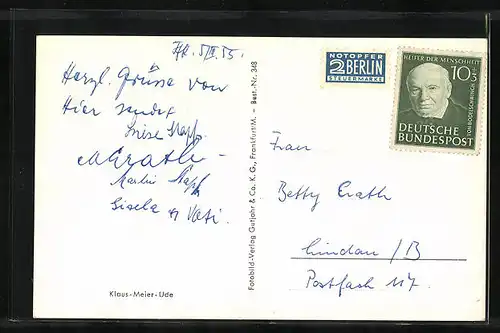 Herzl. Grüsse von
Hier sendet
M Erath -
Martin Stapf
Gisela u. Vati.
Klaus-Meier-Ude
Fotobild-Verlag Gutjahr & Co. K. G., Frankfurt/M. – Best.-Nr. 348
NOTOPFER
2 BERLIN
STEUERMARKE
HELFER DER MENSCHHEIT
10+5
VON BODELSCHWINGH
DEUTSCHE
BUNDESPOST
Frau
Betty Erath
Lindau / B
Postfach 117.